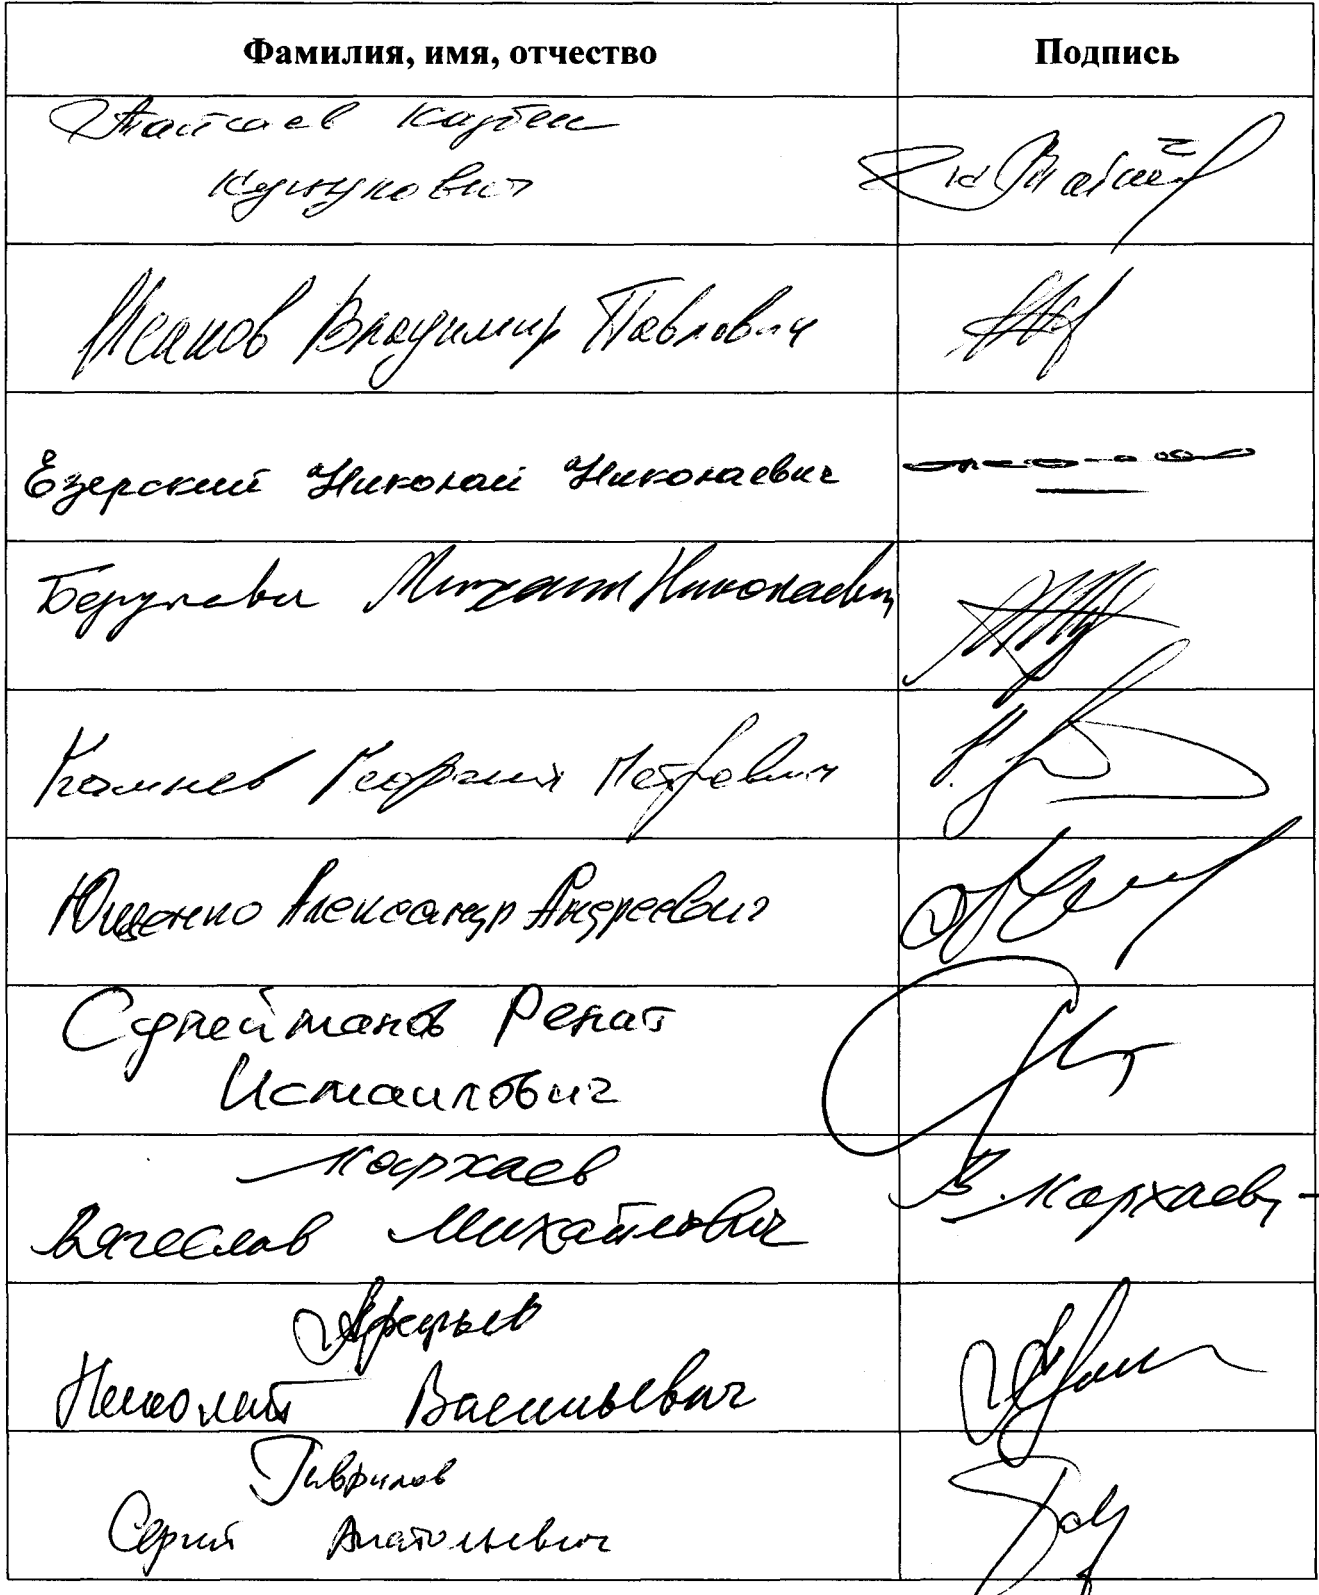 Фамилия, имя, отчество Подпись
Тайсаев Казбек
Куцукович
Исаков Владимир Павлович
Езерский Николай Николаевич
Берулава Михаил Николаевич
Камнев Георгий Петрович
Ющенко Александр Андреевич
Сулейманов Ренат
Исмаилович
Мархаев
Вячеслав Михайлович В. Мархаев
Арефьев
Николай Васильевич
Гаврилов
Сергей Анатольевич